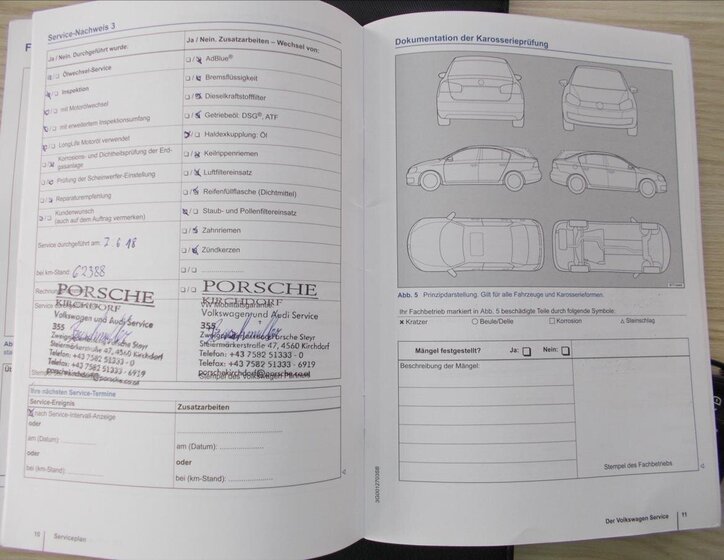 Service-Nachweis 3
Ja / Nein. Durchgeführt wurde:
Ölwechsel-Service
Inspektion
mit Motorölwechsel
mit erweitertem Inspektionsumfang
LongLife Motoröl verwendet
Korrosions- und Dichtheitsprüfung der Erd-
gasanlage
Prüfung der Scheinwerfer-Einstellung
Reparaturempfehlung
Kundenwunsch
(auch auf dem Auftrag vermerken)
Service durchgeführt am: 7.6.18
bei km-Stand: 62388
Ja / Nein. Zusatzarbeiten – Wechsel von:
AdBlue®
Bremsflüssigkeit
Dieselkraftstofffilter
Getriebeöl: DSG®, ATF
Haldexkupplung: Öl
Keilrippenriemen
Luftfiltereinsatz
Reifenfüllflasche (Dichtmittel)
Staub- und Pollenfiltereinsatz
Zahnriemen
Zündkerzen
PORSCHE
KIRCHDORF
Volkswagen und Audi Service
355
Zweigniederlassung Porsche Steyr
Steiermärkerstraße 47, 4560 Kirchdorf
Telefon: +43 7582 51333 - 0
Telefax: +43 7582 51333 - 6919
porschekirchdorf@porsche.co.at
PORSCHE
KIRCHDORF
VW Mobilitätsgarantie
Volkswagen und Audi Service
355
Zweigniederlassung Porsche Steyr
Steiermärkerstraße 47, 4560 Kirchdorf
Telefon: +43 7582 51333 - 0
Telefax: +43 7582 51333 - 6919
porschekirchdorf@porsche.co.at
Stempel des Volkswagen Partners
Ihre nächsten Service-Termine
Service-Ereignis
nach Service-Intervall-Anzeige
oder
am (Datum):
oder
bei (km-Stand):
Zusatzarbeiten
am (Datum):
oder
bei (km-Stand):
10 Serviceplan
Dokumentation der Karosserieprüfung
Abb. 5 Prinzipdarstellung. Gilt für alle Fahrzeuge und Karosserieformen.
Ihr Fachbetrieb markiert in Abb. 5 beschädigte Teile durch folgende Symbole:
× Kratzer ○ Beule/Delle □ Korrosion △ Steinschlag
Mängel festgestellt? Ja: Nein:
Beschreibung der Mängel:
Stempel des Fachbetriebs
Der Volkswagen Service 11